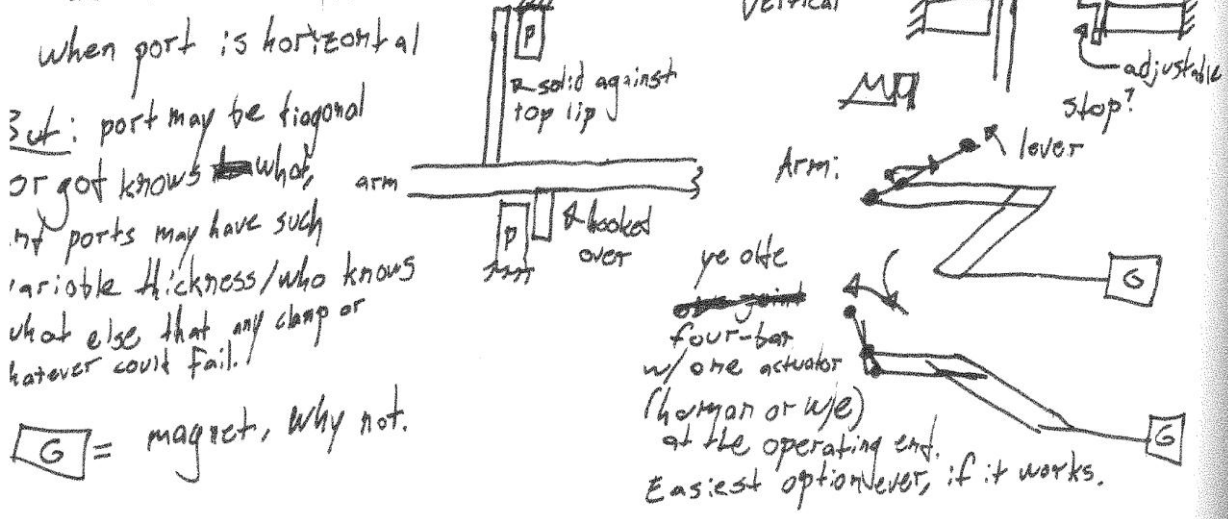 when port is horizontal
But: port may be diagonal
or got knows what,
and ports may have such
variable thickness/who knows
what else that any clamp or
whatever could fail.
G = magnet, why not.
P
solid against
top lip
arm
P
hooked
over
vertical
adjustable
stop?
Arm:
lever
G
ye olde
four-bar
w/ one actuator
(human or w/e)
at the operating end.
Easiest option ever, if it works.
G